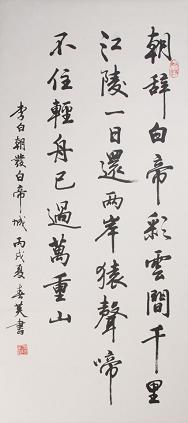 朝辞白帝彩雲間千里
江陵一日還两岸猿聲啼
不住輕舟已過萬重山
李白朝發白帝城 丙戌夏 春英書